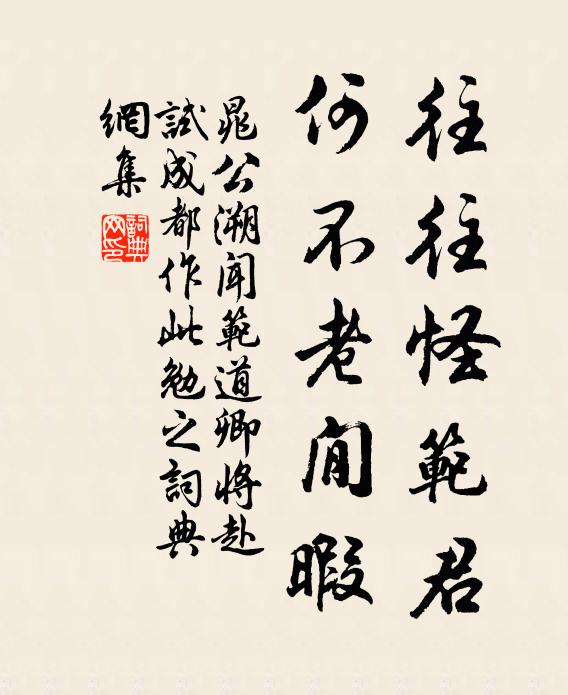 往往怪範君
何不老閒暇
晁公溯聞範道卿將赴
試成都作此勉之詞典
網集
詞典網印